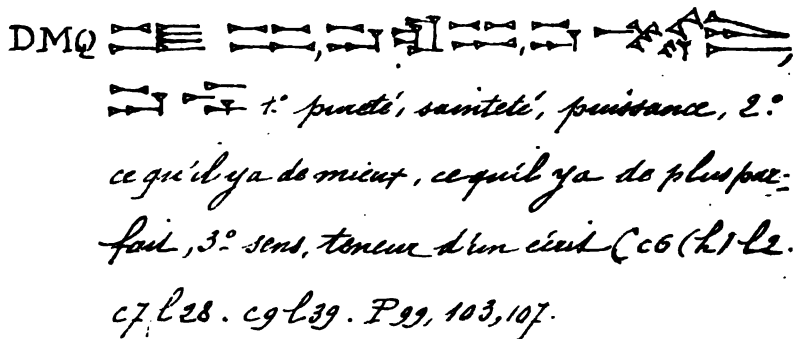 DMQ
1.° pureté, sainteté, puissance, 2.°
ce qu'il y a de mieux, ce qu'il y a de plus par-
fait, 3.° sens, teneur d'un écrit (c6 (h1 l2.
c7 l28. c9 l39. P99, 103, 107.